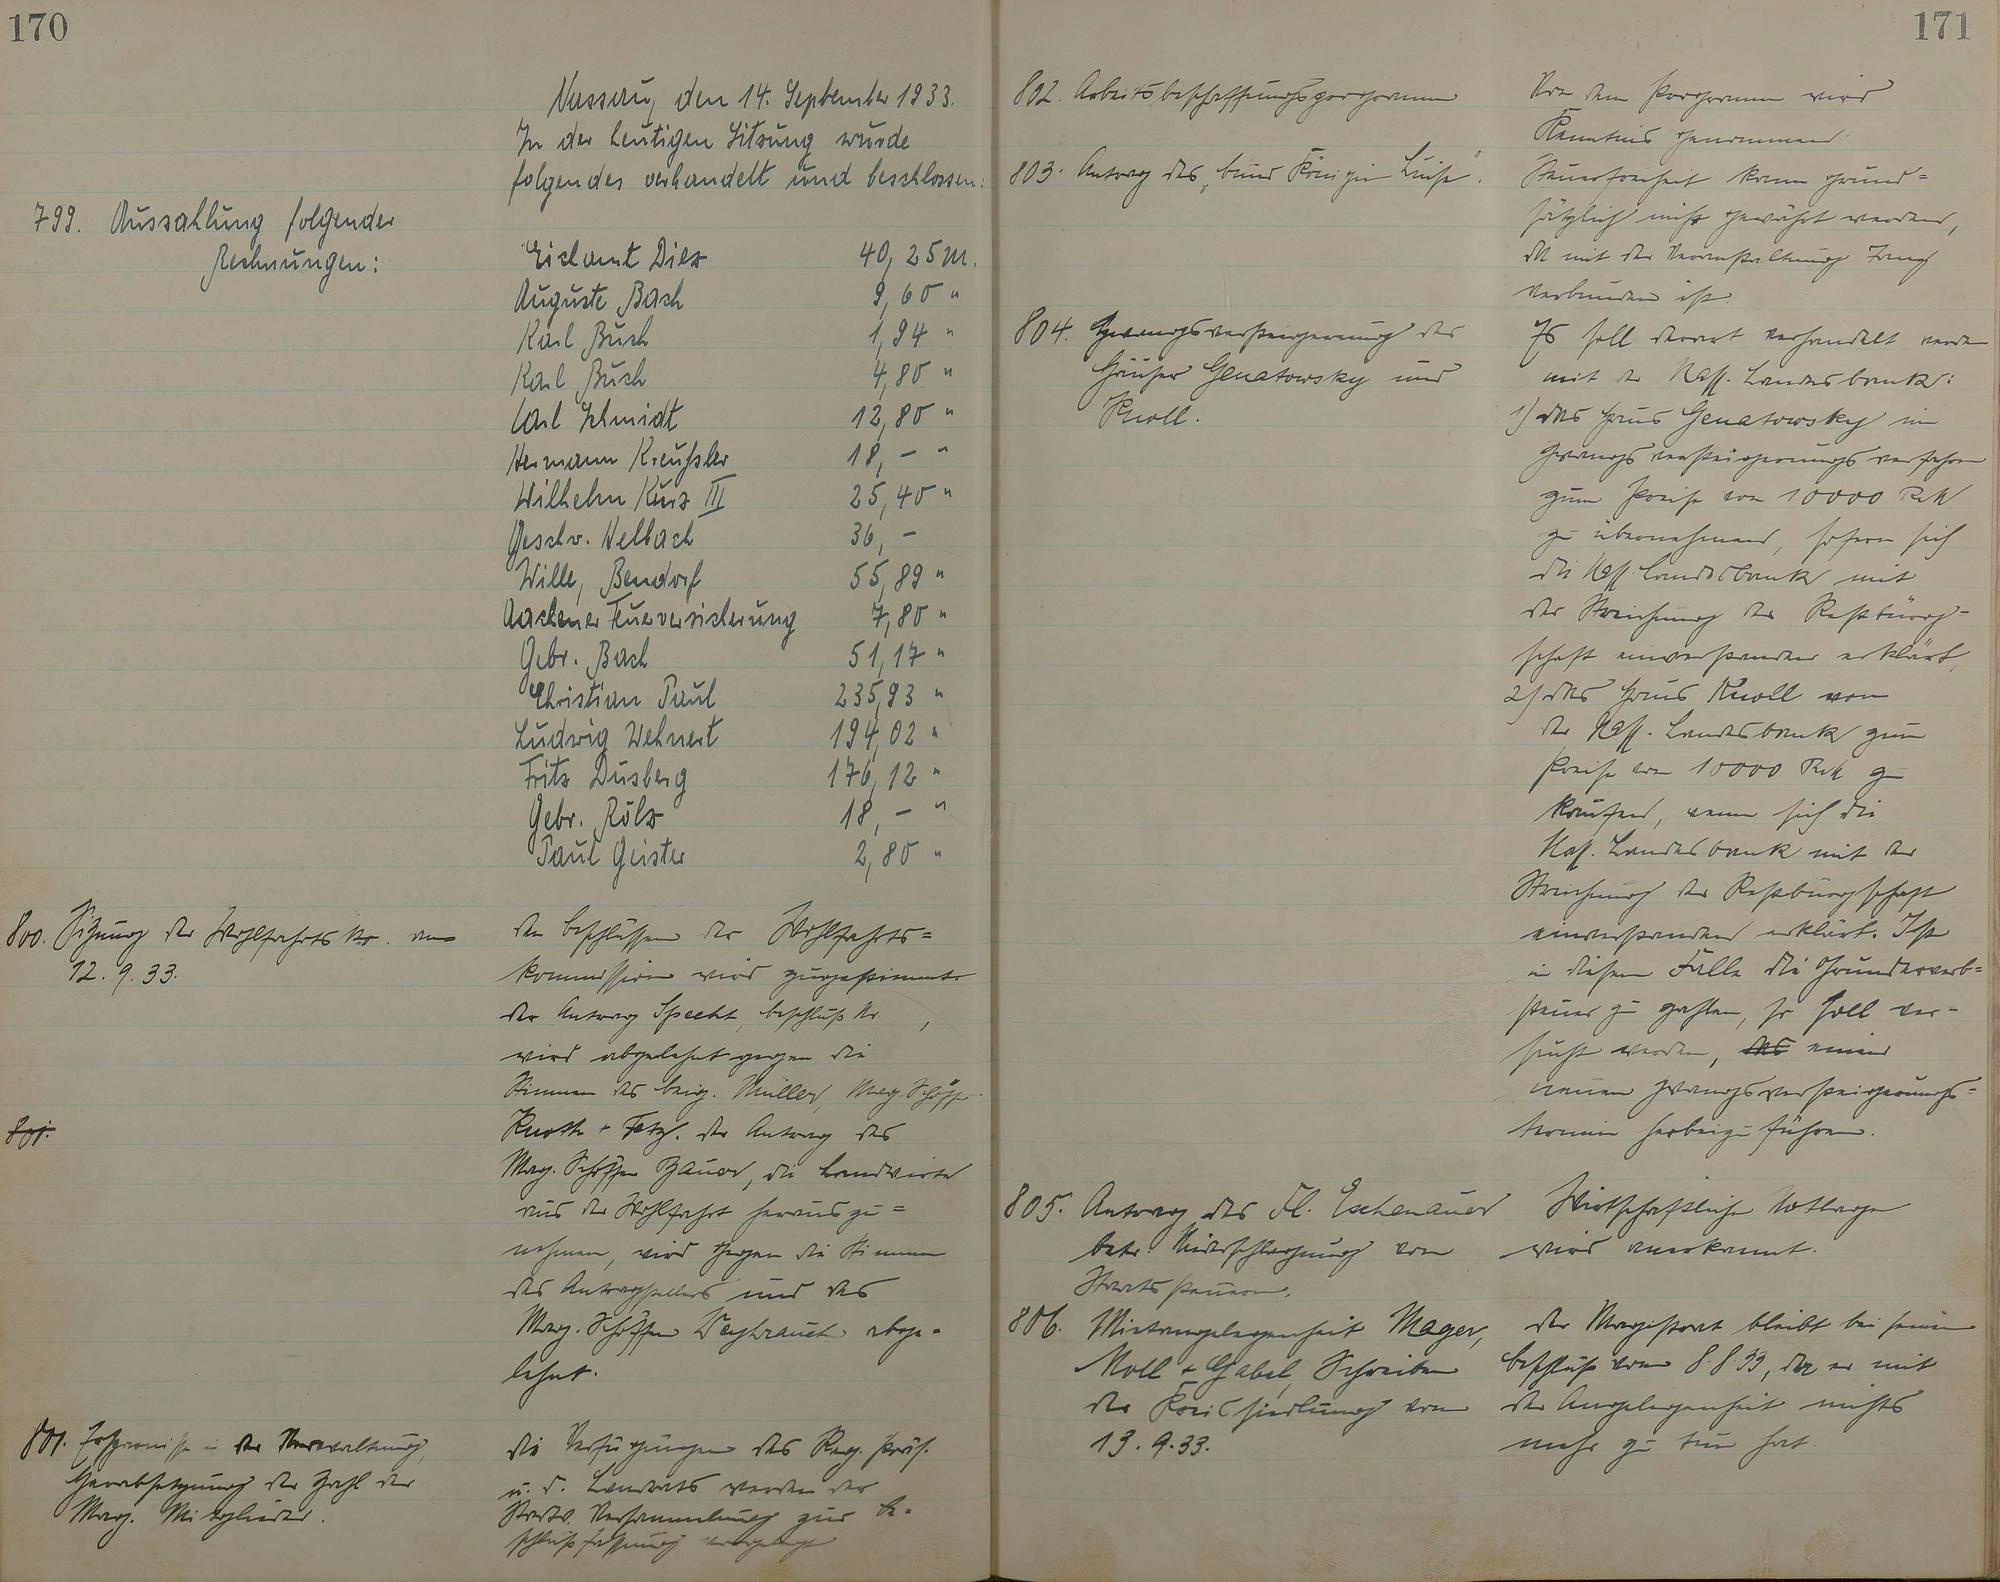 170
Nassau, den 14. September 1933.
In der heutigen Sitzung wurde
folgendes verhandelt und beschlossen:
799. Auszahlung folgender
Rechnungen:
Eichamt Diez 40,25 M.
Auguste Bach 9,60 "
Karl Buch 1,94 "
Karl Buch 4,80 "
Carl Schmidt 12,80 "
Hermann Kreußler 18,– "
Wilhelm Kurz III 25,40 "
Geschw. Helbach 36,–
Wille, Bendorf 55,89 "
Aachener Feuerversicherung 7,80 "
Gebr. Bach 51,17 "
Christian Paul 235,93 "
Ludwig Wehnert 194,02 "
Fritz Dusberg 176,12 "
Gebr. Rölz 18,– "
Paul Geister 2,80 "
800. Sitzung der Wohlfahrts Ko. vom
12.9.33.
Den Beschlüssen der Wohlfahrts=
kommission wird zugestimmt.
Der Antrag Specht, Beschluß Nr ,
wird abgelehnt gegen die
Stimmen des Beig. Müller, Mag. Schöff.
Knoth + Der Antrag des
Mag. Schöffen Bauer, die Landwirte
aus der Wohlfahrt herauszu=
nehmen, wird gegen die Stimmen
des Antragstellers und des
Mag. Schöffen abge=
lehnt.
801.
801. Ersparnisse in der Verwaltung,
Herabsetzung der Zahl der
Mag. Mitglieder.
Die Verfügungen des Reg. Präs.
u. d. Landrats werden der
Stadtv. Versammlung zur Be=
schlußfassung vorgelegt
171
802. Arbeitsbeschaffungsprogramm
Von dem Programm wird
Kenntnis genommen.
803. Antrag des „Bund Königin Luise".
Steuerfreiheit kann grund=
sätzlich nicht gewährt werden,
da mit der Veranstaltung Tanz
verbunden ist.
804. Zwangsversteigerung der
Häuser Genatowsky und
Knoll.
Es soll derart verhandelt werden
mit der Nass. Landesbank:
1) das Haus Genatowsky im
Zwangsversteigerungsverfahren
zum Preise von 10000 RM
zu übernehmen, sofern sich
die Nass. Landesbank mit
der Streichung der Restbürg=
schaft einverstanden erklärt,
2) das Haus Knoll von
der Nass. Landesbank zum
Preise von 10000 RM zu
kaufen, wenn sich die
Nass. Landesbank mit der
Streichung der Restbürgschaft
einverstanden erklärt. Ist
in diesem Falle die Grunderwerb=
steuer zu zahlen, so soll ver=
sucht werden, das einen
neuen Zwangsversteigerungs=
termin herbeizuführen.
805. Antrag des Fl. Eschenauer
betr. Niederschlagung von
Staatssteuern.
Wirtschaftliche Notlage
wird anerkannt.
806. Mietangelegenheit Mager,
Noll + Gabel, Schreiben
der Kreissiedlung vom
13.9.33.
Der Magistrat bleibt bei seinem
Beschluß vom 8.8.33, da er mit
der Angelegenheit nichts
mehr zu tun hat.